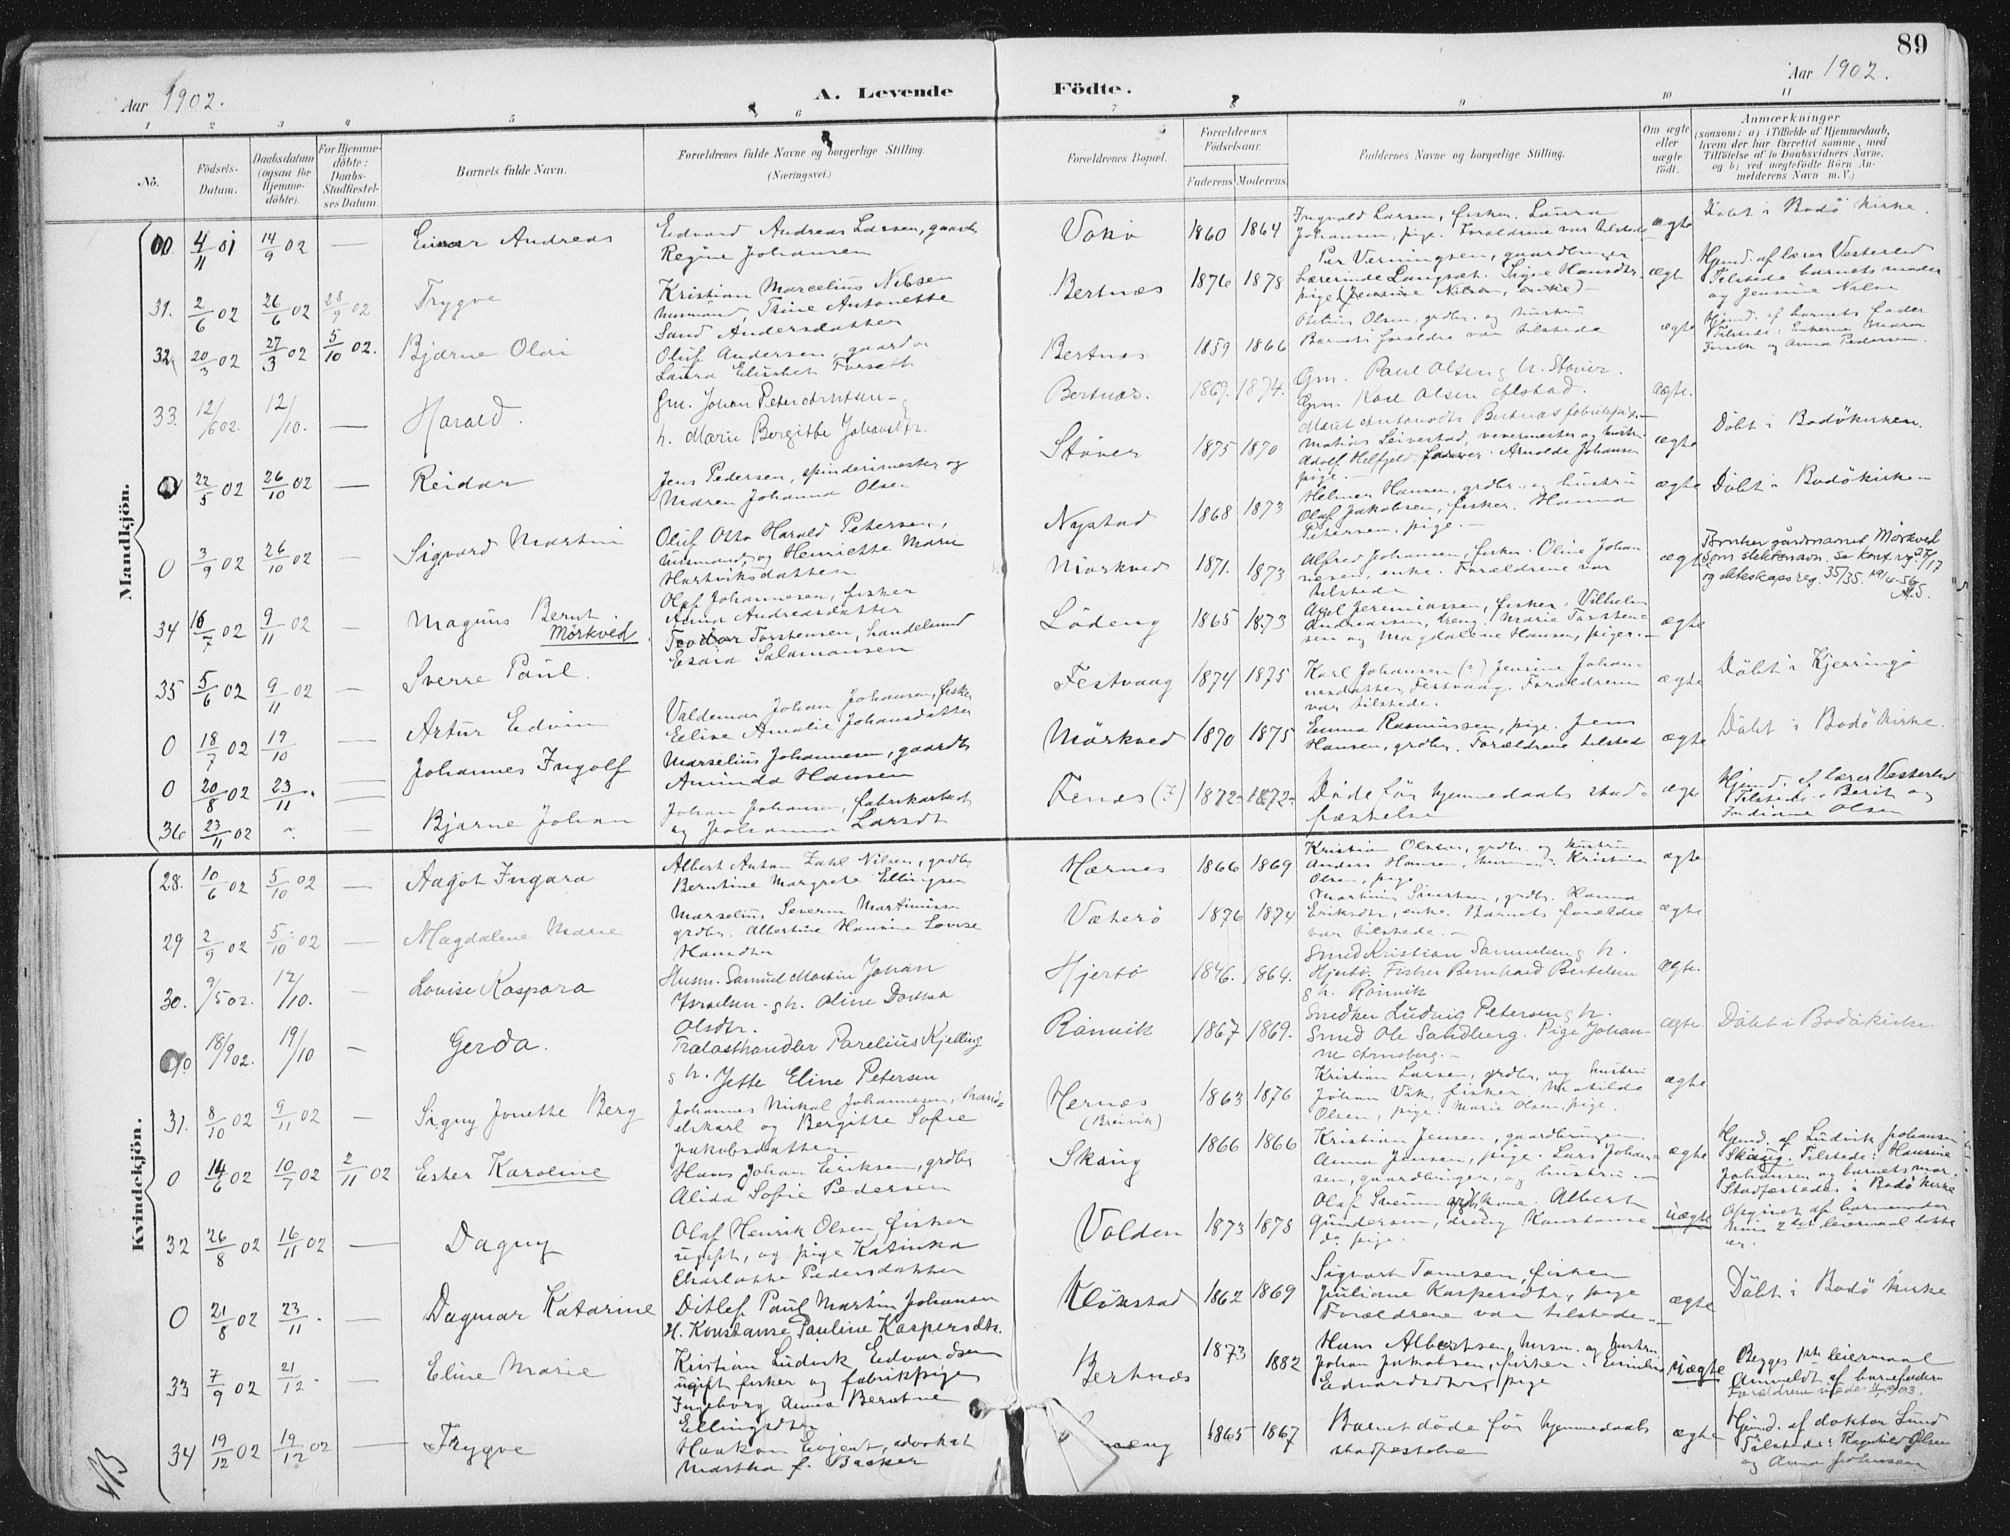 89
Aar 1902.
A. Levende Födte.
Aar 1902.
1 2 3 4 5 6 7 8 9 10 11
No.
Födsels-Datum.
Daabsdatum (ogsaa for Hjemmedöbte).
For Hjemmedöbte: Daabs-Stadfæstelses Datum
Barnets fulde Navn.
Forældrenes fulde Navne og borgerlige Stilling.
(Næringsvei.)
Forældrenes Bopæl.
Forældrenes Födselsaar.
Faderens Moderens
Faddernes Navne og borgerlige Stilling.
Om ægte eller uægte födt.
Anmærkninger
(saasom: a) i Tilfælde af Hjemmedaab, hvem der har forrettet samme, med Tilföielse af to Daabsvidners Navne, og b) ved uægtefödte Börn Anmelderens Navn m. V.)
Mandkjön.
4/11 01 14/9 02 — Einar Andreas
Edvard Andreas Larsen, gaardb.
Regine Johansen
1860 1864
Ingvald Larsen, fisker. Laura
Johansen, pige. Forældrene var tilstede
ægte
Döbt i Bodö kirke.
31. 2/6 02 26/6 02 28/9 02 Trygve
Kristian Marcelius Nilsen
husmand, Trine Antonette
Sand Andersdatter
Bertnæs 1876 1878
pige (Jensine Nilsen, enke) —
ægte
Hjmd. af lærer Vesterlid
Tilstede barnets moder
og Jensine Nilsen
32. 20/3 02 27/3 02 5/10 02. Bjarne Olai
Oluf Andersen, gaardbr
Laura Elisabet Forseth
Bertnæs 1859 1866
Olsen, grdbr. og hustru
Barnets forældre var tilstede
ægte
Hjmd. af barnets fader
Tilstede: Enkerne Maren
Forseth og Anna Pedersen.
33. 12/6 02. 12/10. — Harald.
Gm. Johan Peter Arntsen — g
h. Marie Bergitte Johansdtr.
Bertnæs. 1869. 1874.
Gm. Paul Olsen g h. Støver.
Gm. Karl Olsen Alstad.
ægte.
22/5 02 26/10 02 — Reidar
Jens Pedersen, spinderimester og
Maren Johanna Olsen
Støver 1875 1870
Matias Seivestad, vevermester og hustru
Adolf Helfjeld farver. Arnolda Johansen
pige. —
ægte
Döbt i Bodökirken.
0 3/9 02 26/10 02 — Sigvard Martin
Oluf Otto Harald Petersen,
husmand, og Henriette Marie
Hartviksdatter
Nystad 1868 1873
Helmer Hansen, grdbr. og hustru
Olaf Jakobsen, fisker. Hanna
Petersen, pige. —
ægte
Döbt i Bodökirken
34 16/7 02 9/11 02 — Magnus Bernt Mörkved
Olaf Johannesen, fisker
Anna Andreasdatter
Mörkved 1871. 1873
Alfred Johansen, fisker. Oline Johannesen, enke. Forældrene var
tilstede
ægte
Bruker gårdsnavnet Mörkved
som slektsnavn. Se konf. reg. 27/17
og ekteskapsreg. 35/35. 19/4-56
A.S.
35 5/6 02 9/11 02 — Sverre Paul.
Teodor Torstensen, handelsmd
Esaia Salamonsen
Löding 1865 1873
Axel Jeremiassen, fisker. Vilhelm
Andreassen, dreng. Marie Torstensen og Magdalene Hansen, piger. —
ægte
0 18/7 02 19/10 — Artur Edvin
Valdemar Johan Johansen, fisker
Eeline Amalie Johansdatter
Festvaag 1874 1875
Karl Johansen (?) Jensine Johannesdatter, Festvaag. Forældrene
var tilstede.
ægte
Döbt i Kjerringö
0 20/8 02 23/11. — Johannes Ingolf
Marselius Johannesen, gaardb
Aminda Hansen
Mörkved 1870 1875
Emma Rasmussen, pige. Jens
Hansen, grdbr. Forældrene tilstede
ægte
Döbt i Bodö kirke.
36 23/11 02 — Bjarne Johan
Johan Johansen, fabrikarbeid
og Johanna Larsdt
Fenæs (?) 1872 1872
Döde för hjemmedaabs stadfæstelse
ægte
Hjmd. af lærer Vesterlid
Tilstede: Berit og
Indianna Olsen
Kvindekjön.
28. 10/6 02 5/10 02 — Aagot Ingara
Albert Anton Zahl Nilsen, grdbr
Berntine Margrete Ellingsen
Hernes 1866 1869
Kristian Olsen, grdbr. og hustru
Anders Hansen, husmand. Kristine
Olsen, pige
ægte
29 2/9 02 5/10 02 — Magdalene Marie
Marselius Severin Martinussen
grdbr. Albertine Hansine Lovise
Hansdtr
Væterö 1876 1874
Martinus Sivertsen, grdbr. Hanna
Eriksdtr, enke. Barnets forældre
var tilstede. —
ægte
30. 9/5 02. 12/10. — Lovise Kaspara
Husm. Samuel Martin Johan
Israelsen — g h. Oline Dorthea
Olsdtr.
Hjertö 1846. 1864.
Smed Kristian Samuelsen g h.
Hjertö. Fisker Bernhard Bertelsen
g h. Rönvik
ægte.
18/9 02. 19/10 — Gerda.
Trælasthandler Parelius Kjelling
g h. Jette Eline Petersen
Rönvik 1867 1869.
Snedker Ludvig Petersen g h.
Smed Ole Sandberg. Pige Johanne Arnsberg. —
ægte
Döbt i Bodökirke.
31. 8/10 02 9/11 02 — Signy Jonette Berg
Johannes Nikal Johannesen, handelskarl og Bergitte Sofie
Jakobsdatter
Hernæs
(Breivik)
1863 1876
Kristian Larsen, grdbr, og hustru
Johan Vik, fisker, Matilde
Olsen, pige. Marie Olsen, pige.
ægte
0 14/6 02 10/7 02 2/11 02 Ester Karoline
Hans Johan Eriksen, grdbr
Alida Sofie Pedersen
Skaug 1866 1866
Kristian Jensen, gaardbruger.
Anna Jensen, pige. Lars Johansen, gaardbruger, og hustru —
ægte
Hjmd. af Ludvik Johansen
Skaug. Tilstede: Hansine
Johansen og barnets mor.
Stadfæstedes i Bodö kirke
32 26/8 02 16/11 02 — Dagny
Olaf Henrik Olsen fisker
ugift, og pige Katinka
Charlotte Pedersdatter
Volden 1873 1875
Gundersen, dreng Konstanse
do. pige.
uægte
Opgivet af barnemoder
0 21/8 02 23/11. — Dagmar Katarine
Ditlef Paul Martin Johansen
H. Konstanse Pauline Kaspersdtr.
Klökstad 1862 1869
Sigvart Tomesen, fisker
Juliane Kaspersdtr, pige
Forældrene var tilstede. —
ægte
Döbt i Bodö kirke
33 7/9 02 21/12. — Eline Marie
Kristian Ludvik Edvardsen
ugift fisker og fabrikpige
Ingeborg Anna Berntine
Ellingsdtr
Bertnæs 1873 1882
Hans Albertsen, husm. og hustru
Johan Jakobsen, fisker.
Edvardsdtr, pige
uægte
Begges 1ste leiermaal
Anmeldt af barnefaderen
34 19/12 02 19/12 02 — Trygve
Haakon Evjent, advokat
Martha f. Backer
1865 1867
Barnet döde før hjemmedaabs
stadfæstelse
ægte
Hjmd. af doktor Lund
Tilstede: Ragnhild Olsen
og Anna Johnsen